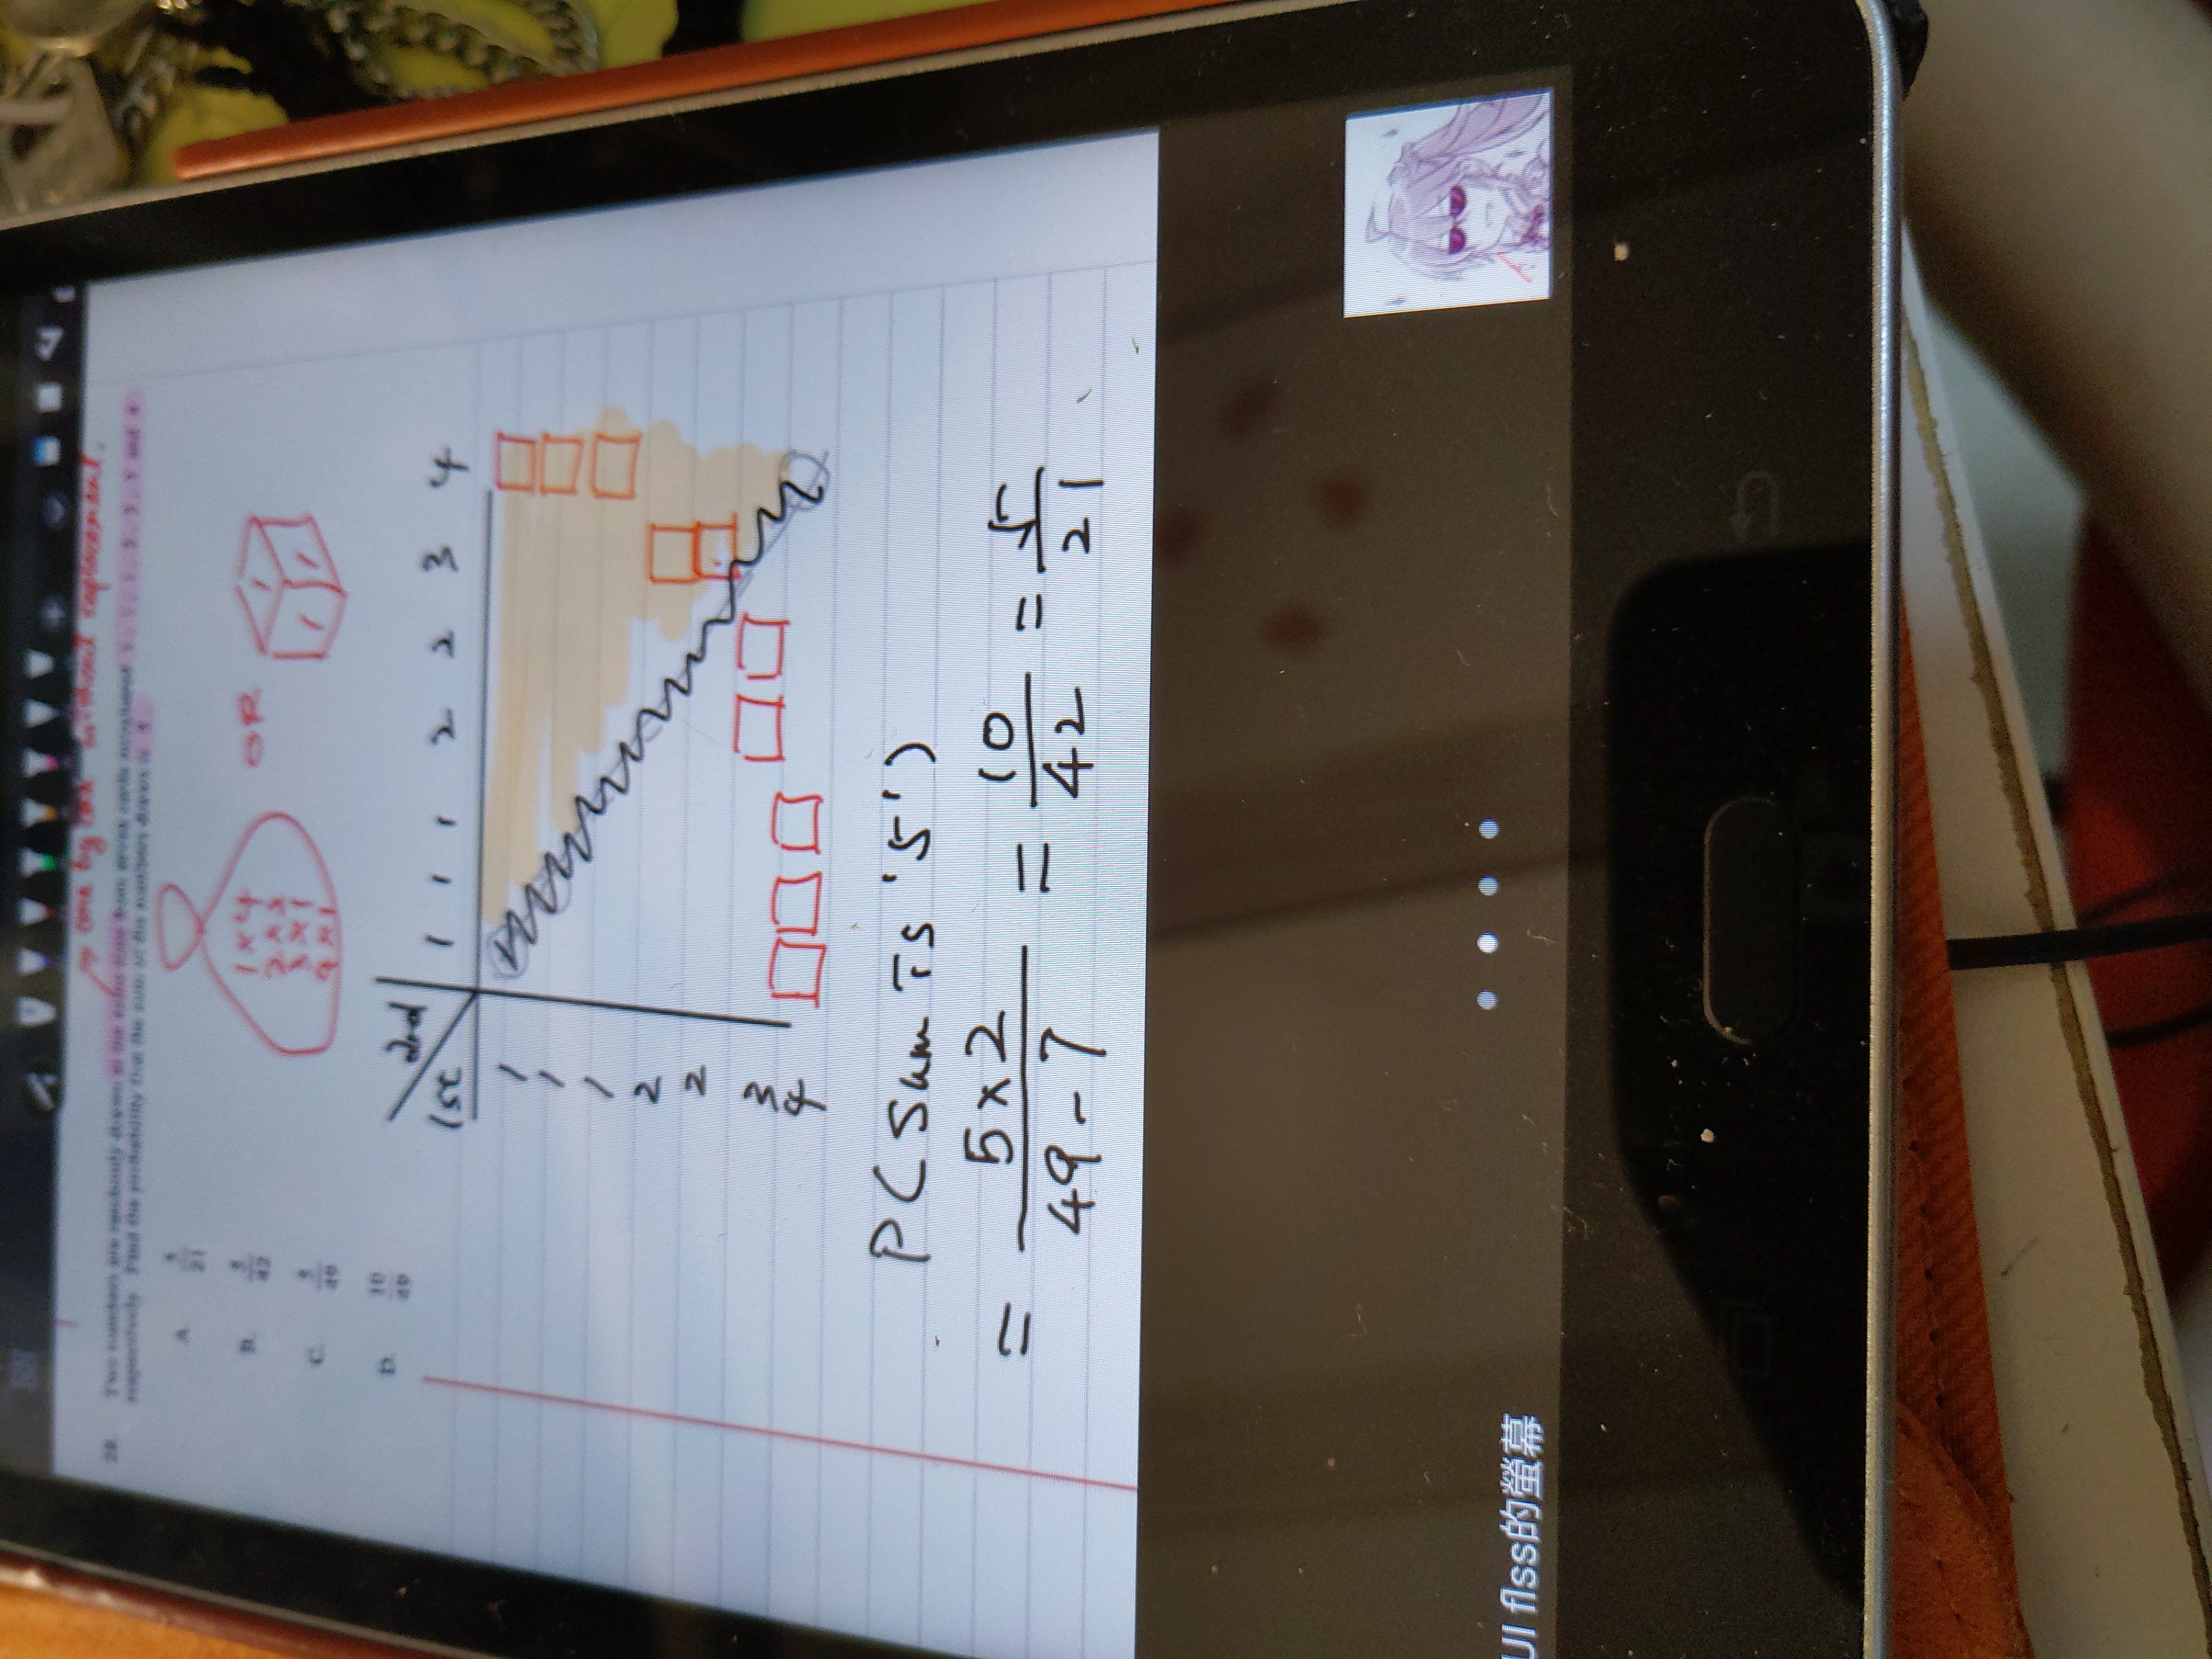 one by one without replacement.
28. Two numbers are randomly drawn at the same time from seven cards numbered 1, 1, 1, 2, 2, 3 and 4
respectively. Find the probability that the sum of the numbers drawn is 5
A. 5/21
B. 5/42
C. 5/49
D. 10/49
1×4
3×1
OR
1 1 1
2nd
1st
1 1 1 2 2 3 4
1
1
1
2
2
3
4
P(Sum is '5')
= 5×2/49-7 = 10/42 = 5/21
UI flss的螢幕